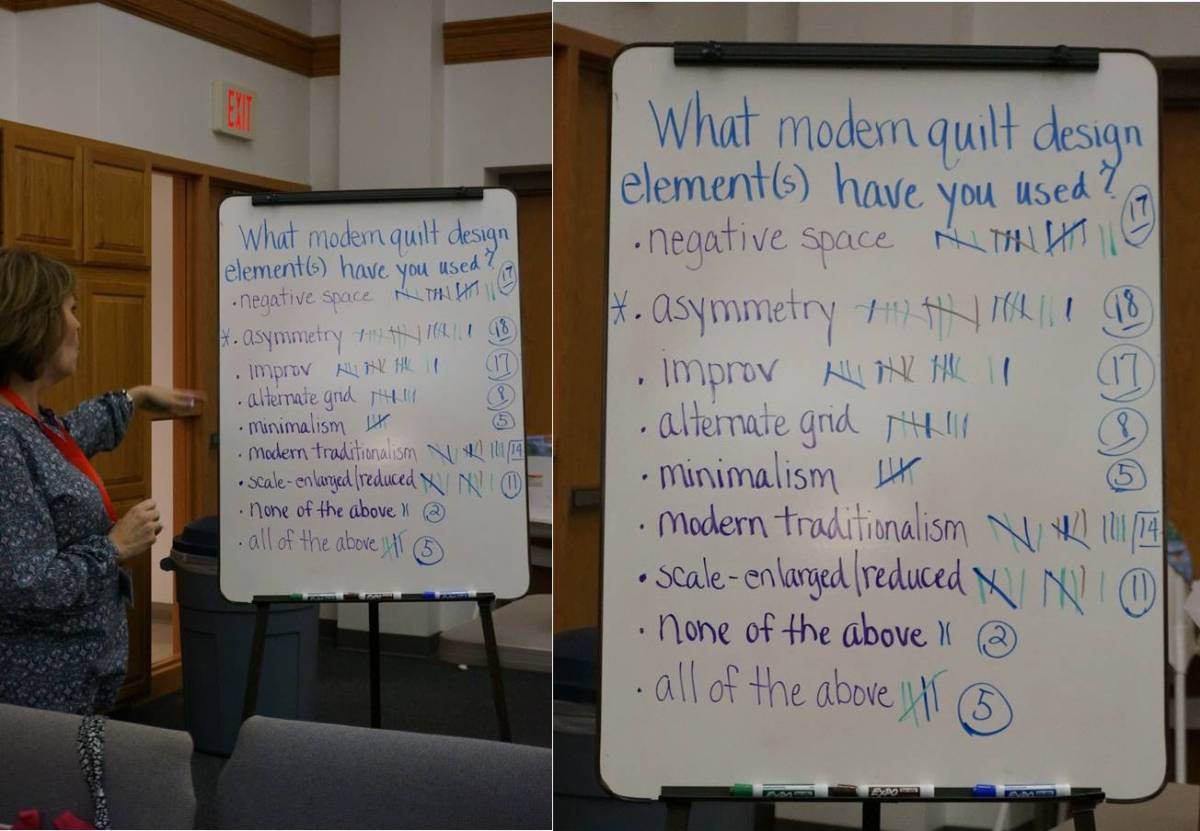 EXIT
What modern quilt design
element(s) have you used?
• negative space 17
* • asymmetry 18
• improv 17
• alternate grid 8
• minimalism 5
• modern traditionalism 14
• scale-enlarged/reduced 11
• none of the above 2
• all of the above 5
What modern quilt design
element(s) have you used?
• negative space 17
* • asymmetry 18
• improv 17
• alternate grid 8
• minimalism 5
• modern traditionalism 14
• scale-enlarged/reduced 11
• none of the above 2
• all of the above 5
EXPO EXPO